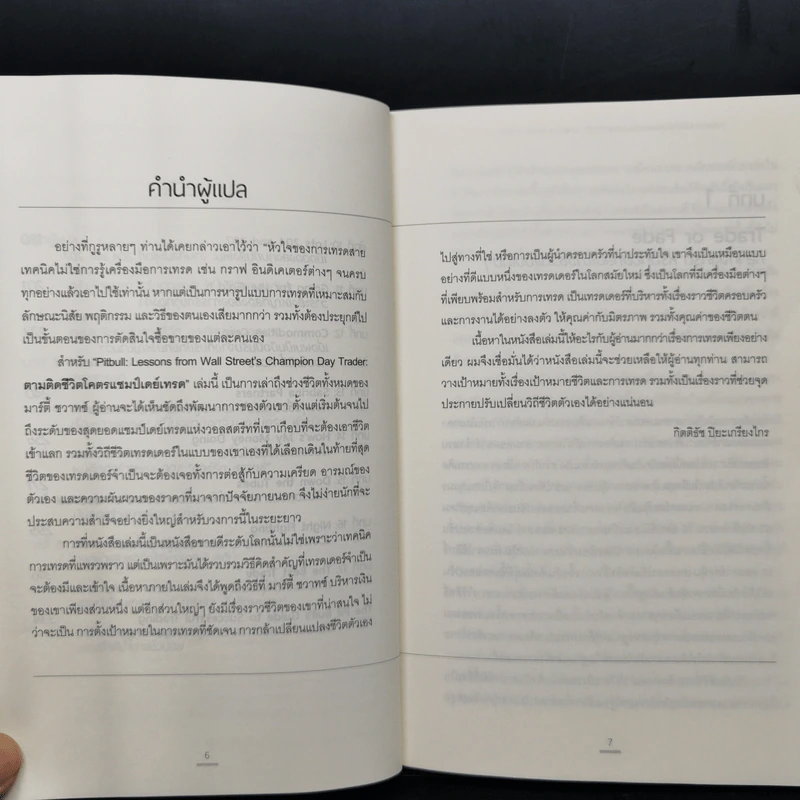 คำนำผู้แปล
อย่างที่กูรูหลายๆ ท่านได้เคยกล่าวเอาไว้ว่า "หัวใจของการเทรดสาย
เทคนิคไม่ใช่การรู้เครื่องมือการเทรด เช่น กราฟ อินดิเคเตอร์ต่างๆ จนครบ
ทุกอย่างแล้วเอาไปใช้เท่านั้น หากแต่เป็นการหารูปแบบการเทรดที่เหมาะสมกับ
ลักษณะนิสัย พฤติกรรม และวิธีของตนเองเสียมากกว่า รวมทั้งต้องประยุกต์ไป
เป็นขั้นตอนของการตัดสินใจซื้อขายของแต่ละคนเอง
สำหรับ "Pitbull: Lessons from Wall Street's Champion Day Trader:
ตามติดชีวิตโคตรแชมป์เดย์เทรด" เล่มนี้ เป็นการเล่าถึงช่วงชีวิตทั้งหมดของ
มาร์ตี้ ชวาทซ์ ผู้อ่านจะได้เห็นชัดถึงพัฒนาการของตัวเขา ตั้งแต่เริ่มต้นจนไป
ถึงระดับของสุดยอดแชมป์เดย์เทรดแห่งวอลสตรีทที่เขาเกือบที่จะต้องเอาชีวิต
เข้าแลก รวมทั้งวิถีชีวิตเทรดเดอร์ในแบบของเขาเองที่ได้เลือกเดินในท้ายที่สุด
ชีวิตของเทรดเดอร์จำเป็นจะต้องเจอทั้งการต่อสู้กับความเครียด อารมณ์ของ
ตัวเอง และความผันผวนของราคาที่มาจากปัจจัยภายนอก จึงไม่ง่ายนักที่จะ
ประสบความสำเร็จอย่างยิ่งใหญ่สำหรับวงการนี้ในระยะยาว
การที่หนังสือเล่มนี้เป็นหนังสือขายดีระดับโลกนั้นไม่ใช่เพราะว่าเทคนิค
การเทรดที่แพรวพราว แต่เป็นเพราะมันได้รวบรวมวิธีคิดสำคัญที่เทรดเดอร์จำเป็น
จะต้องมีและเข้าใจ เนื้อหาภายในเล่มจึงได้พูดถึงวิธีที่ มาร์ตี้ ชวาทซ์ บริหารเงิน
ของเขาเพียงส่วนหนึ่ง แต่อีกส่วนใหญ่ๆ ยังมีเรื่องราวชีวิตของเขาที่น่าสนใจ ไม่
ว่าจะเป็น การตั้งเป้าหมายในการเทรดที่ชัดเจน การกล้าเปลี่ยนแปลงชีวิตตัวเอง
6
ไปสู่ทางที่ใช่ หรือการเป็นผู้นำครอบครัวที่น่าประทับใจ เขาจึงเป็นเหมือนแบบ
อย่างที่ดีแบบหนึ่งของเทรดเดอร์ในโลกสมัยใหม่ ซึ่งเป็นโลกที่มีเครื่องมือต่างๆ
ที่เพียบพร้อมสำหรับการเทรด เป็นเทรดเดอร์ที่บริหารทั้งเรื่องราวชีวิตครอบครัว
และการงานได้อย่างลงตัว ให้คุณค่ากับมิตรภาพ รวมทั้งคุณค่าของชีวิตตน
เนื้อหาในหนังสือเล่มนี้ให้อะไรกับผู้อ่านมากกว่าเรื่องการเทรดเพียงอย่าง
เดียว ผมจึงเชื่อมั่นได้ว่าหนังสือเล่มนี้จะช่วยเหลือให้ผู้อ่านทุกท่าน สามารถ
วางเป้าหมายทั้งเรื่องเป้าหมายชีวิตและการเทรด รวมทั้งเป็นเรื่องราวที่ช่วยจุด
ประกายปรับเปลี่ยนวิถีชีวิตตัวเองได้อย่างแน่นอน
กิตติธัช ปิยะเกรียงไกร
7